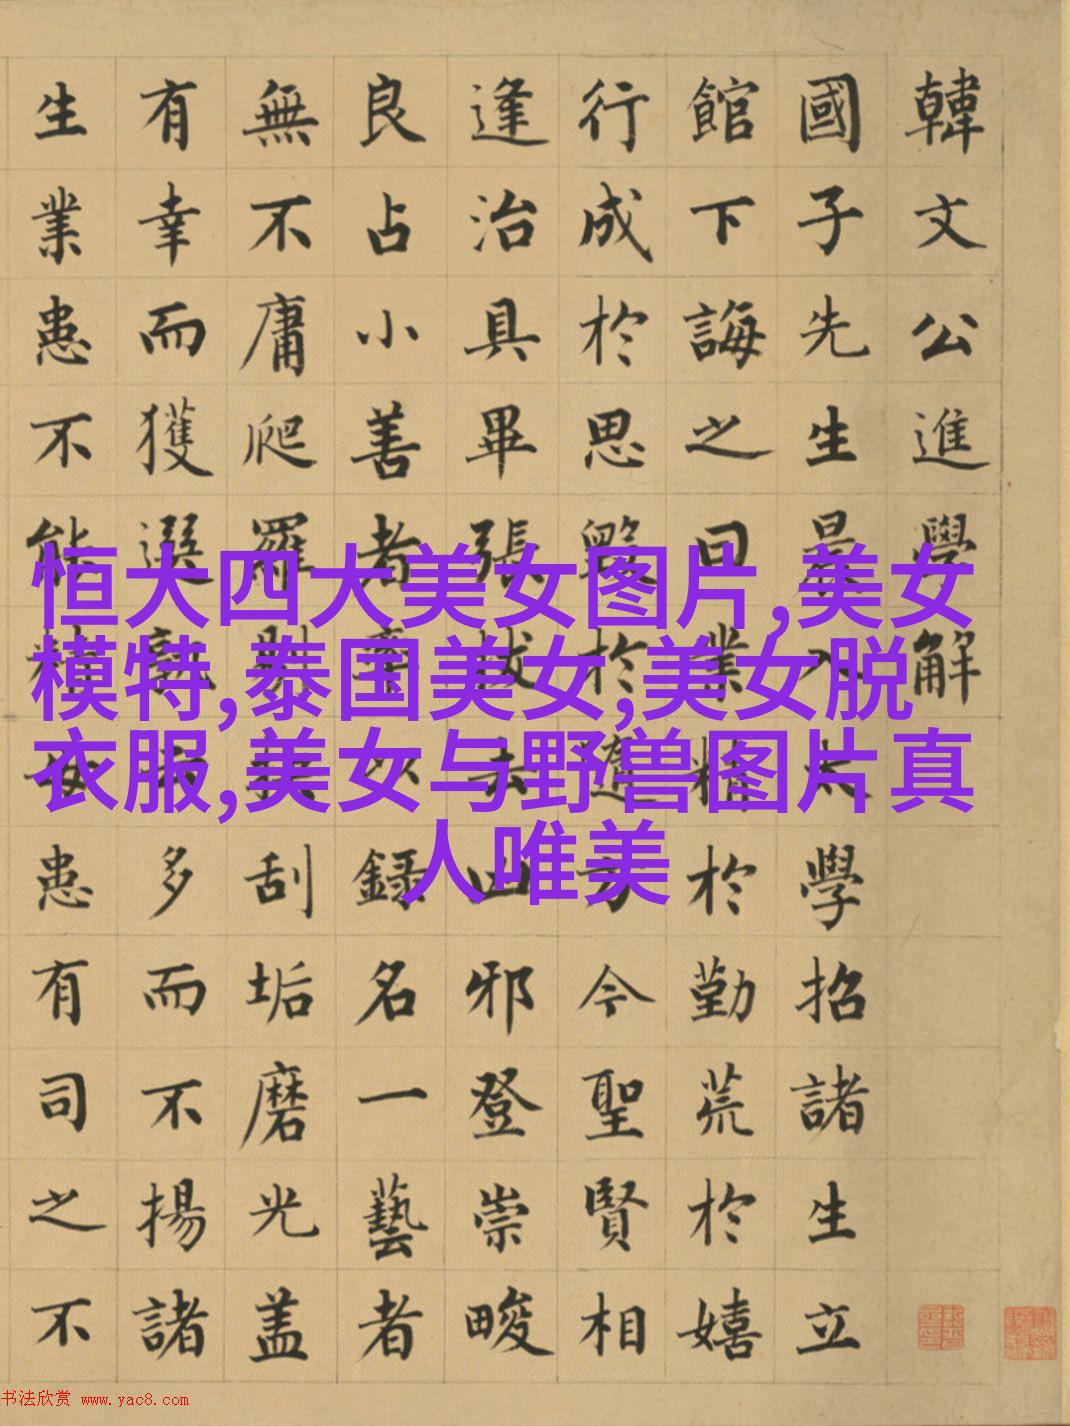 韓文公進學解
國子先生晨入太學招諸生立
館下誨之曰業精於勤荒於嬉
行成於思毀於隨方今聖賢相
逢治具畢張拔去凶邪登崇畯
良占小善者率以錄名一藝者
無不庸爬羅剔抉刮垢磨光盖
有幸而獲選孰云多而不揚諸
生業患不能精患有司之不
恒大四大美女图片,美女
模特,泰国美女,美女脱
衣服,美女与野兽图片真
人唯美
书法欣赏 www.yac8.com